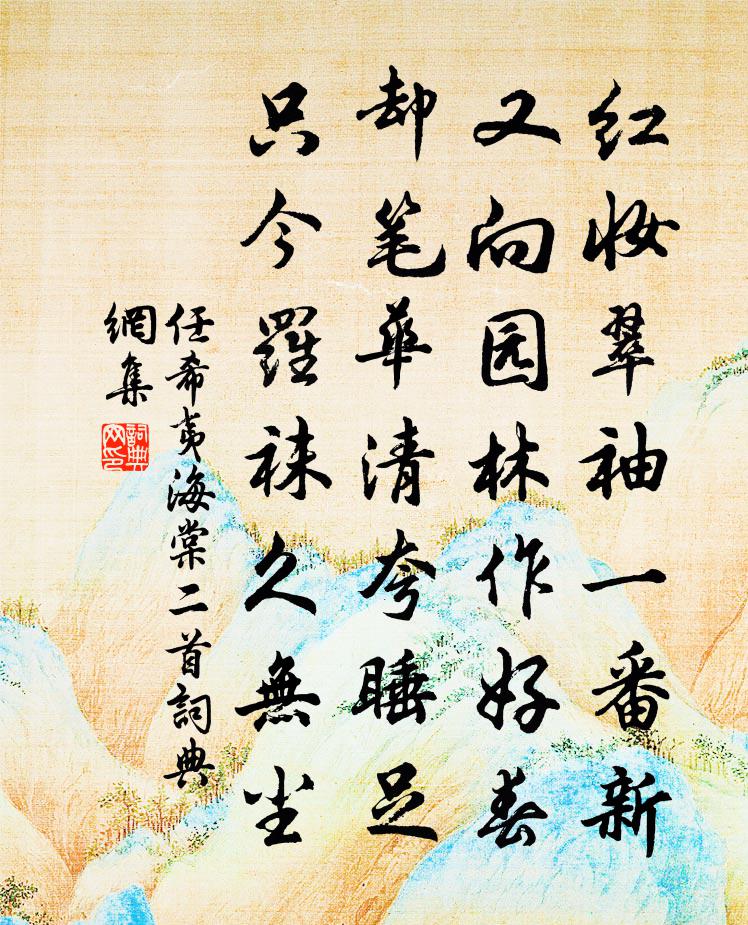 红妆翠袖一番新
又向园林作好春
却笔华清夸睡足
只今羅袜久無尘
任希夷海棠二首詞典
網集
詞典
网印